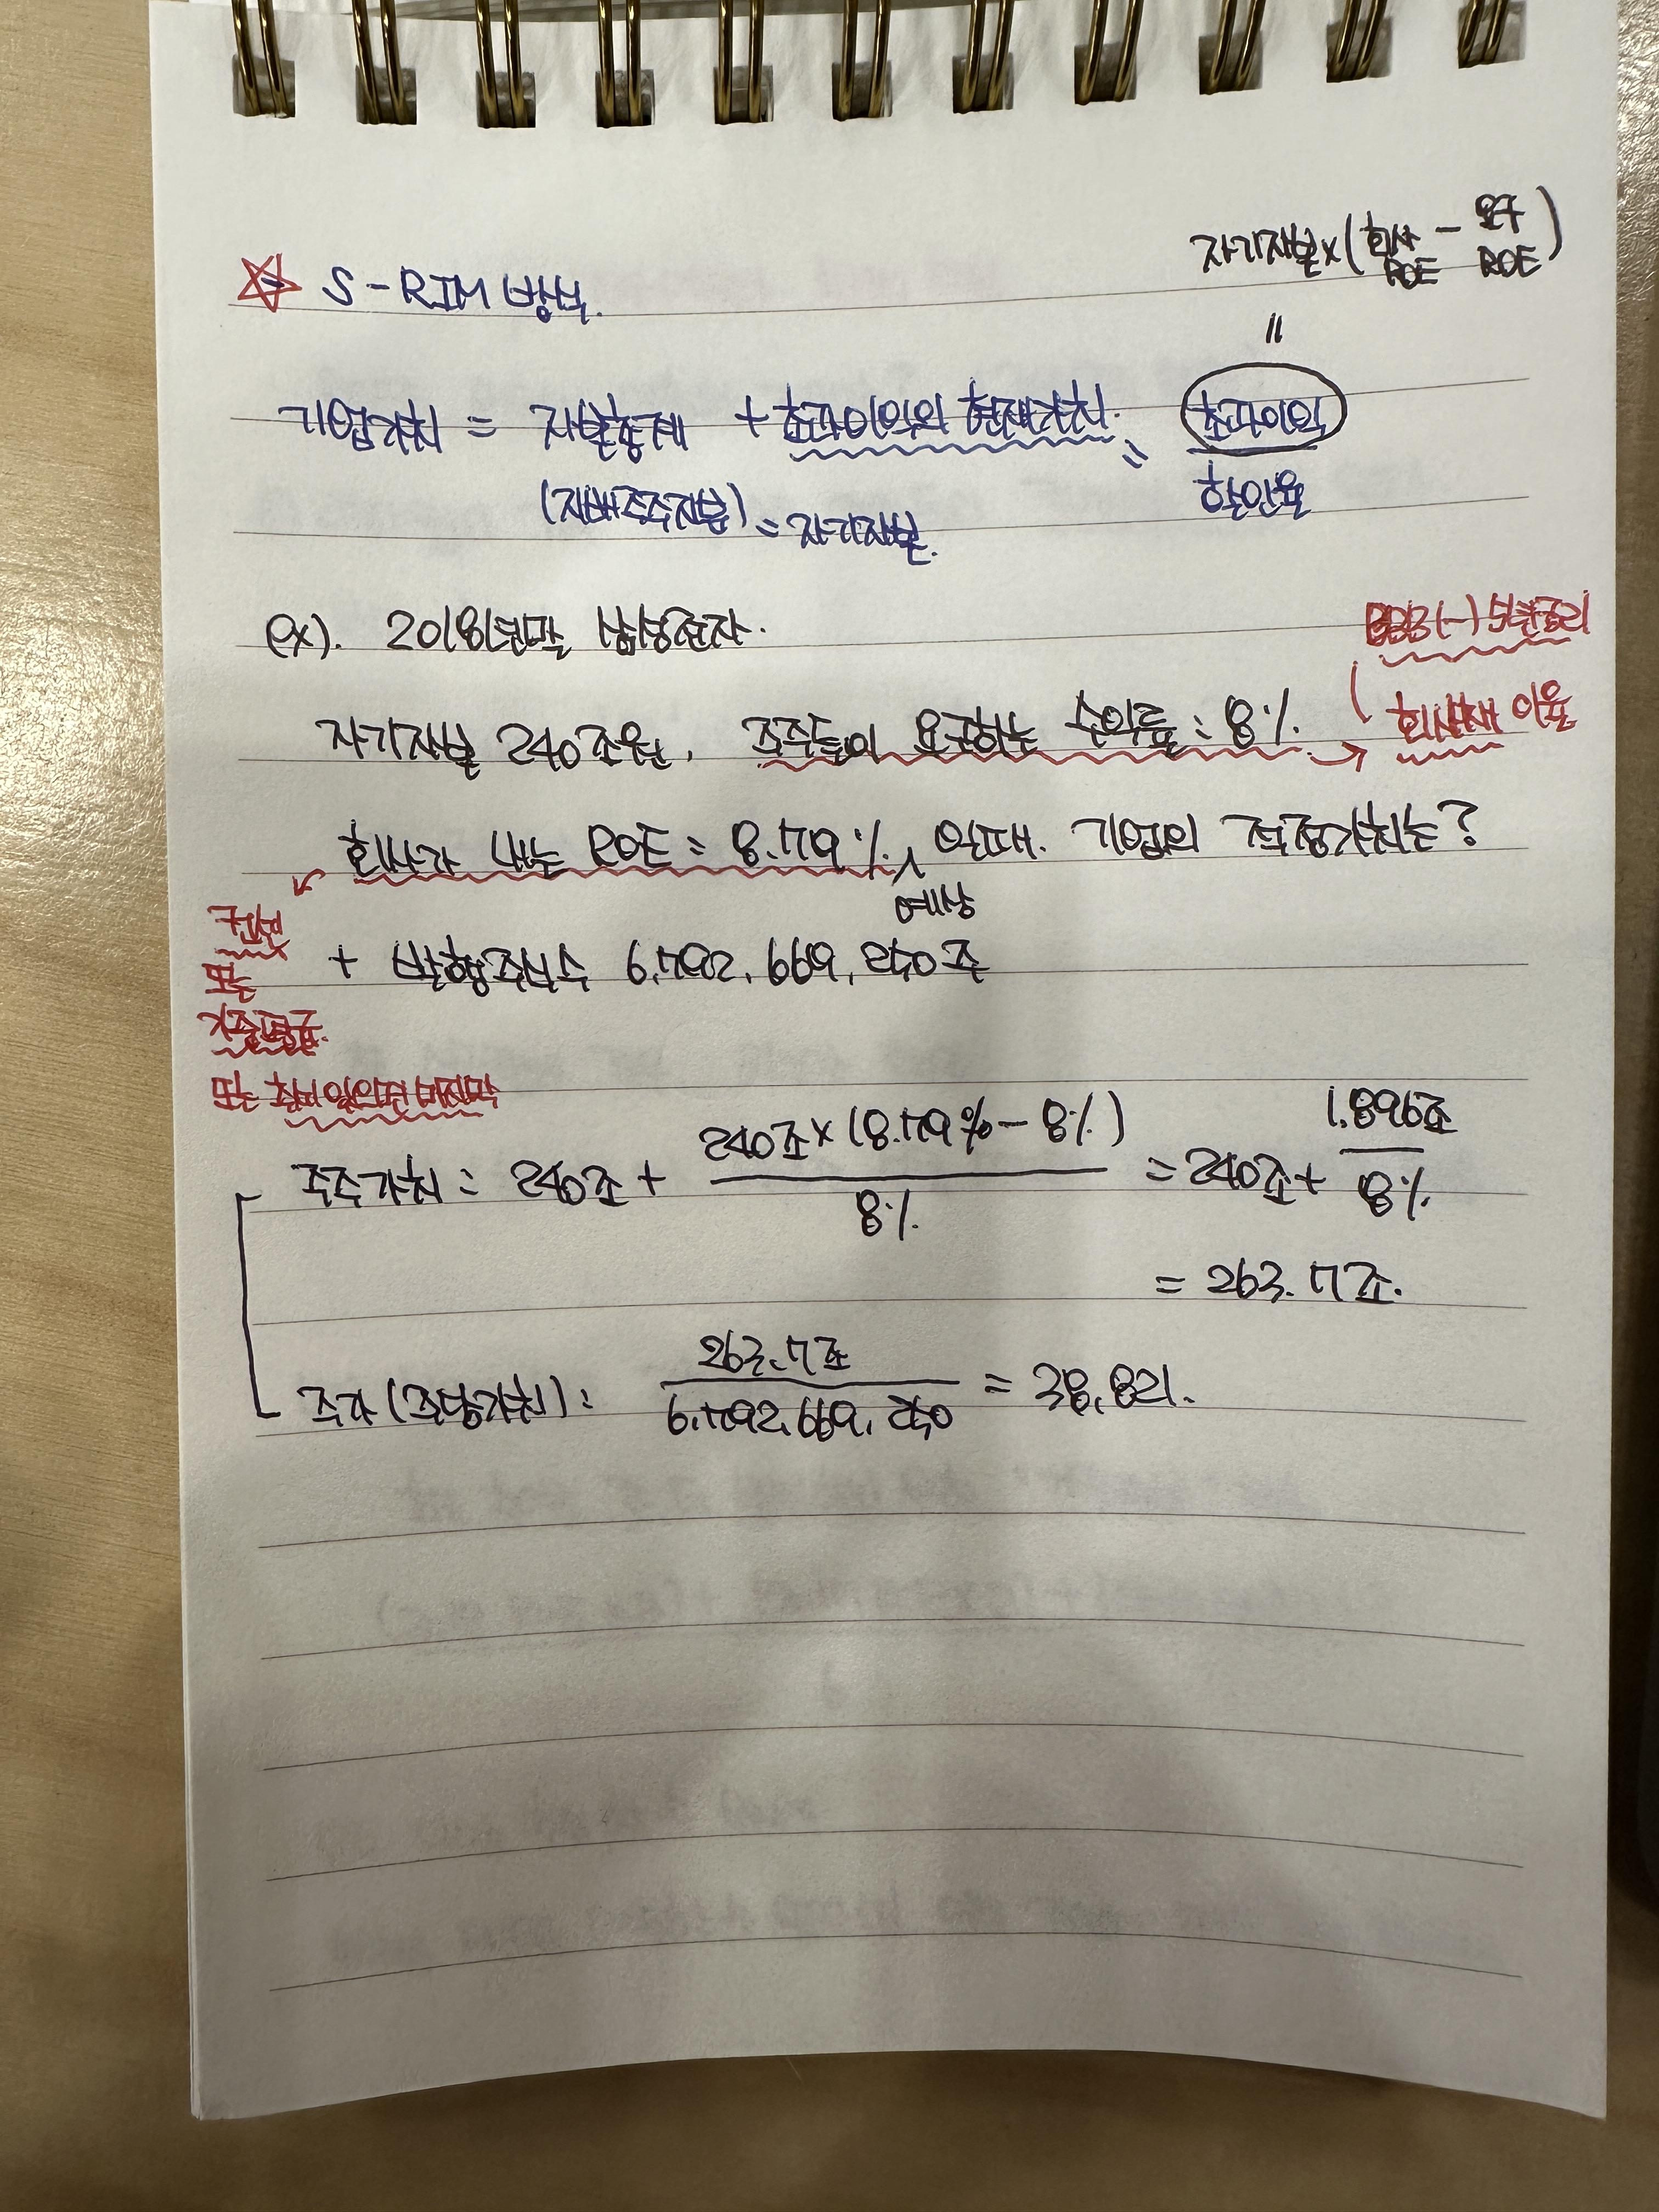 자기자본×(회사ROE - 요구ROE)
S-RIM 방식.
॥
기업가치 = 자본총계 + 초과이익의 현재가치. = 초과이익
(지배주주지분) = 자기자본. 할인율
ex). 2018년말 삼성전자.
BBB(-) 5년금리
자기자본 240조원, 주주들이 요구하는 수익률 : 8% → 회사채 이율
회사가 내는 ROE = 8.79% 일때. 기업의 적정가치는?
예상
컨센
또는
가중평균.
또는 추세 있으면 마지막
+ 발행주식수 6,792,669,250주
주주가치 = 240조 + 240조×(8.79%-8%) / 8% = 240조 + 1.896조 / 8%
= 263.7조.
주가(주당가치) : 263.7조 / 6,792,669,250 = 38,821.